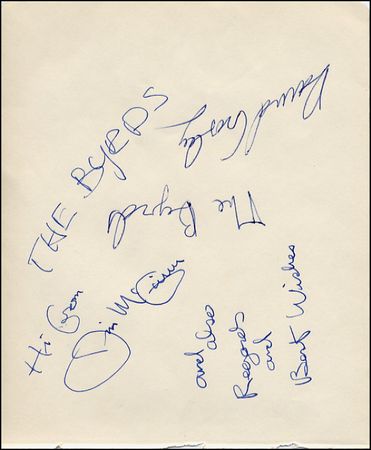 THE BYRDS
Hi from
Jim McGuinn
David Crosby
The Byrds
and also
Regards
and
Best Wishes